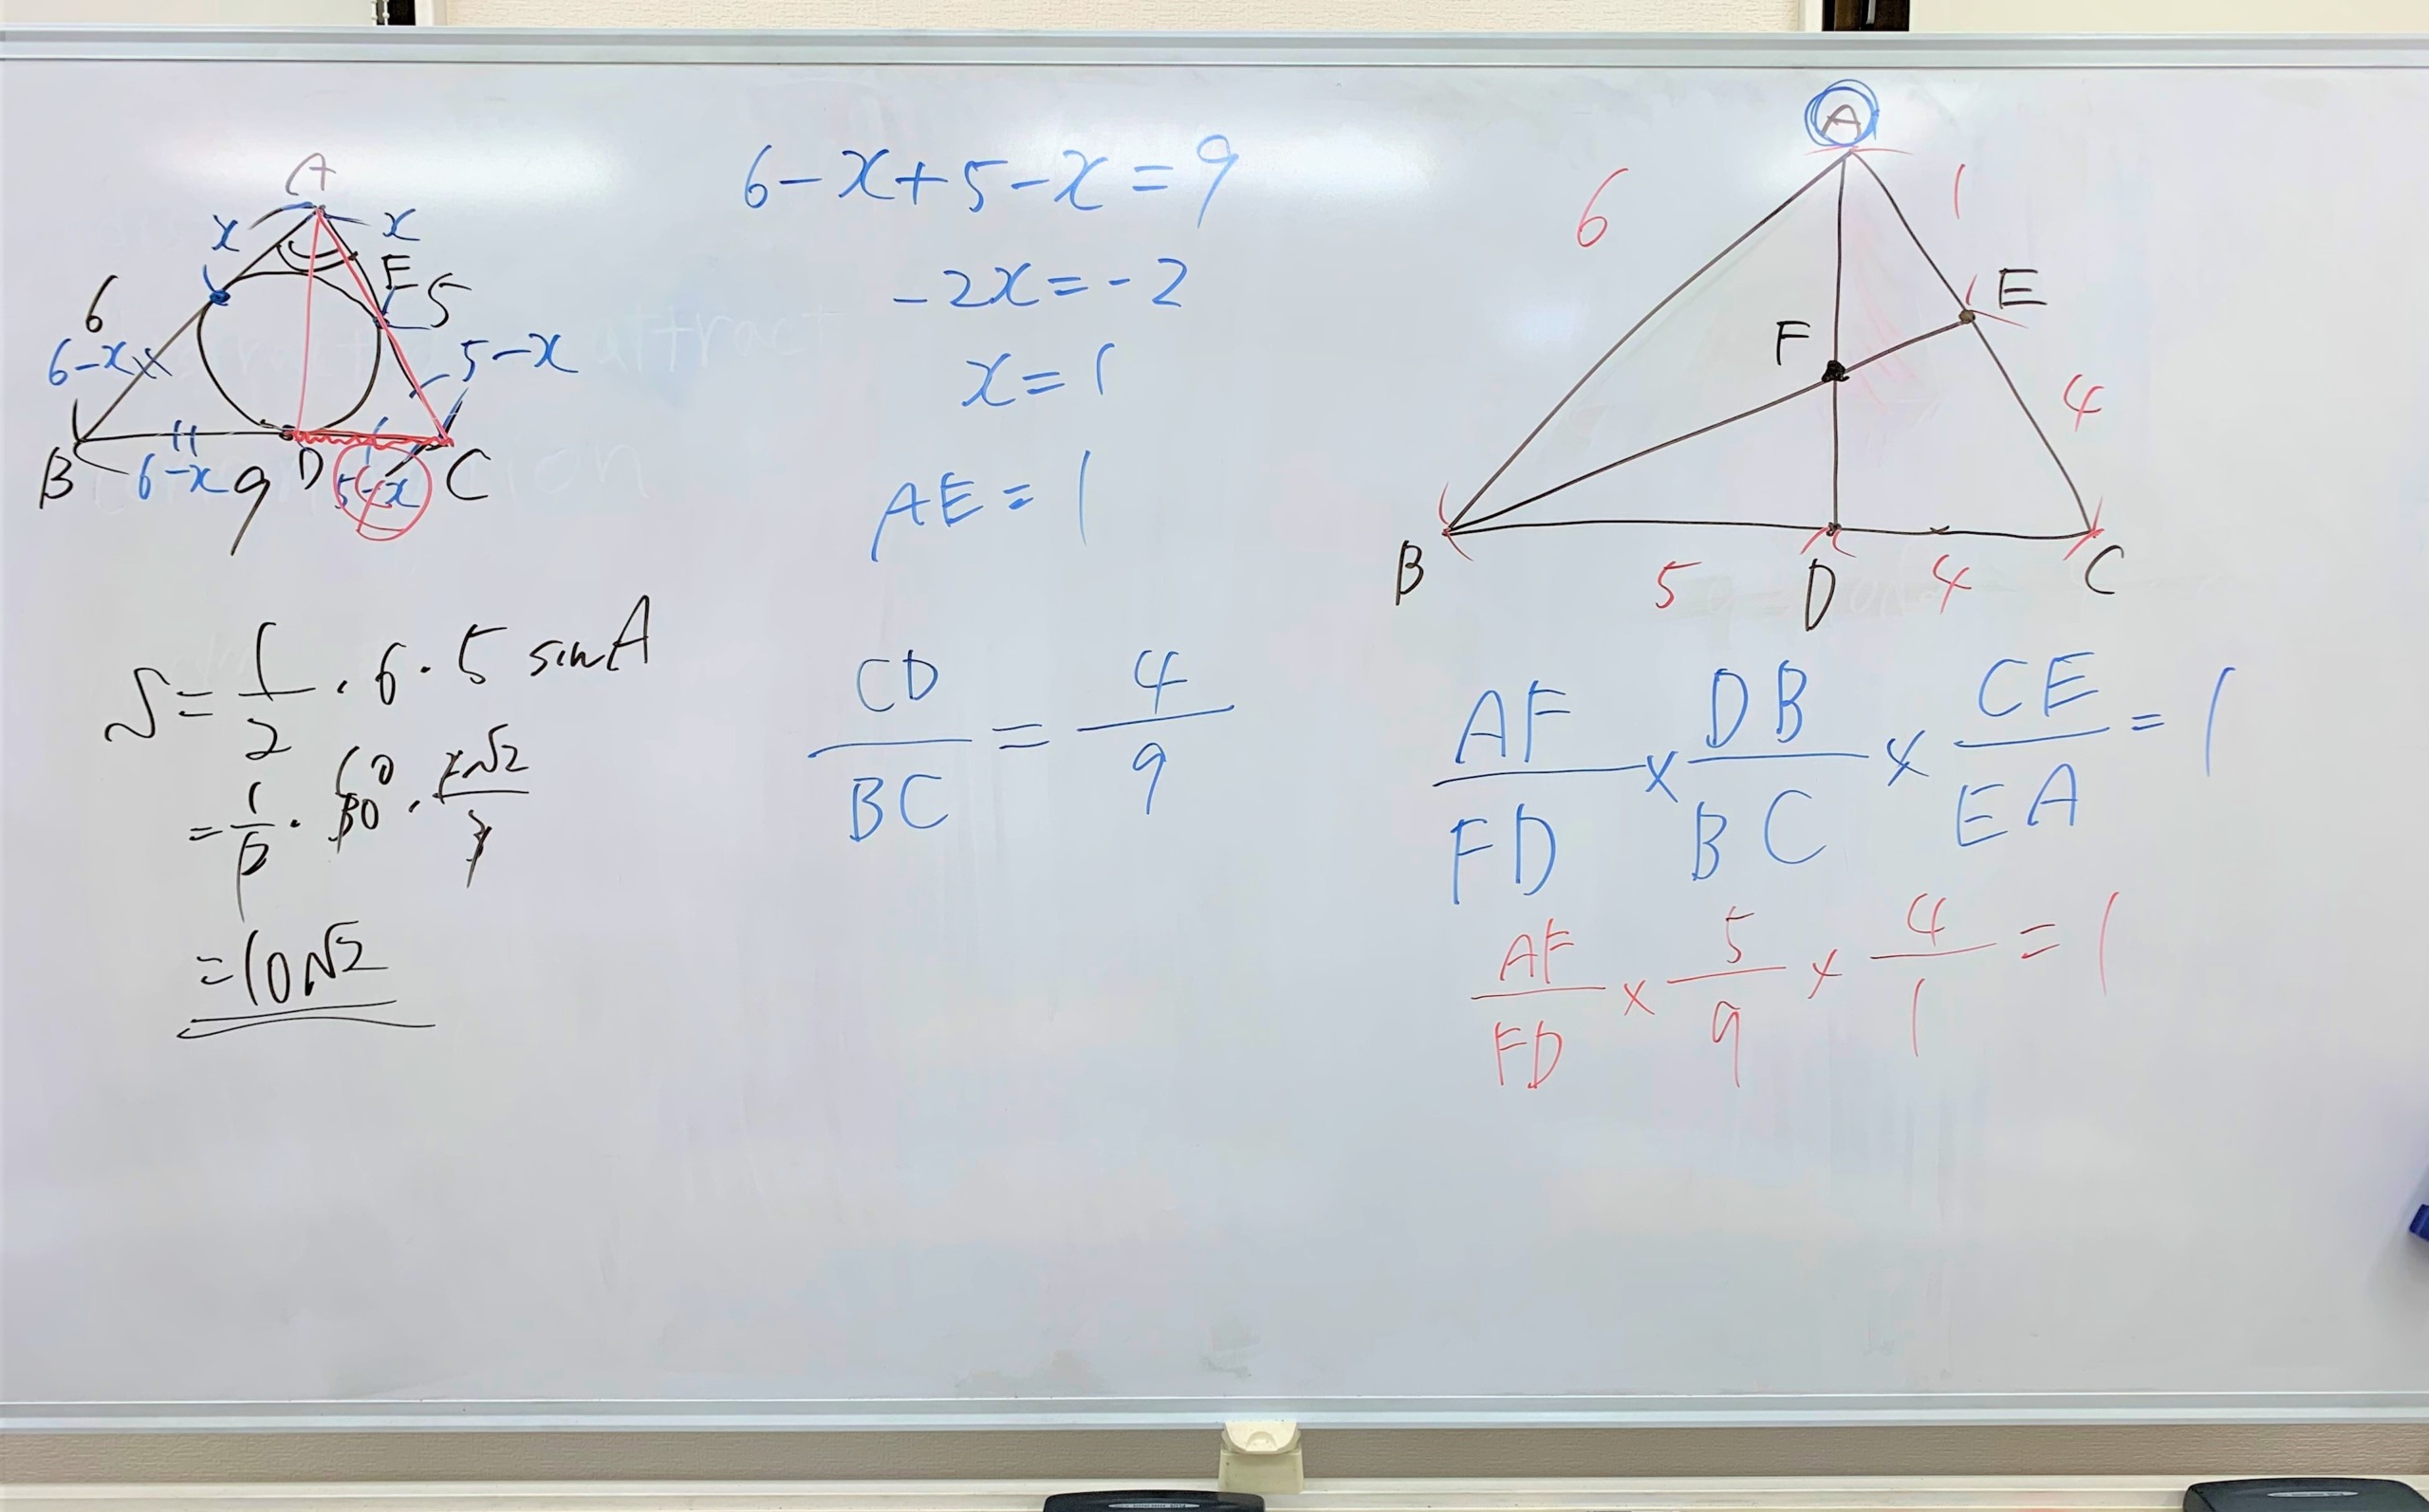 A
x x
E
6 5
6-x 5-x
B 6-x 9 D C
S = 1/2 · 6 · 5 sinA
= 10√2
6-x+5-x=9
-2x=-2
x=1
AE=1
CD/BC = 4/9
A
6 1
E
F
4
B 5 D 4 C
AF/FD × DB/BC × CE/EA = 1
AF/FD × 5/9 × 4/1 = 1